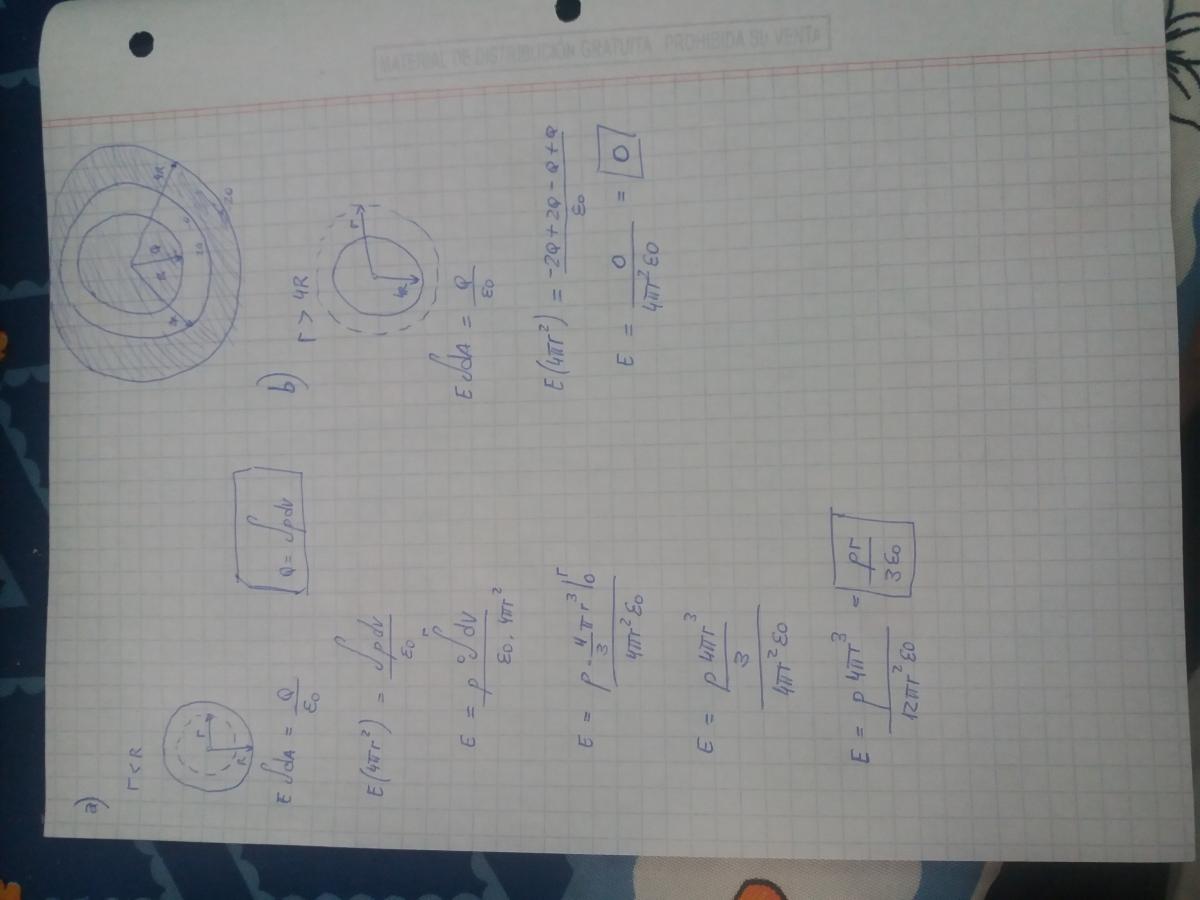 MATERIAL DE DISTRIBUCIÓN GRATUITA. PROHIBIDA SU VENTA
a)
r < R
r
R
E ∫dA = Q/ε0
Q = ∫ρdV
E(4πr²) = ∫ρdV/ε0
E = ρ ∫₀ʳ dV / ε0 · 4πr²
E = ρ · 4/3 πr³ |₀ʳ / 4πr²ε0
E = ρ 4πr³/3 / 4πr²ε0
E = ρ 4πr³ / 12πr²ε0 = ρr/3ε0
4R
Q
R
2Q
b)
r > 4R
r
4R
E ∫dA = Q/ε0
E(4πr²) = -2Q + 2Q - Q + Q / ε0
E = 0 / 4πr²ε0 = 0